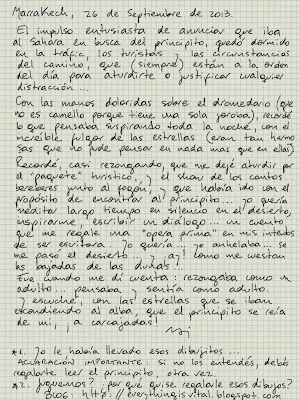 Marrakech, 26 de Septiembre de 2013.
El impulso entusiasta de anunciar que iba
al Sahara en busca del principito, quedó dormido
en la tráfic, los turistas y las circunstancias
del camino, que (siempre) están a la orden
del día para aturdirte o justificar cualquier
distracción...
Con las manos doloridas sobre el dromedario (que
no es camello porque tiene una sola joroba), recordé
lo que pensaba suspirando toda la noche, con el
increíble fulgor de las estrellas (eran tan hermo
sas que no pude pensar en nada más que en ellas)
Recordé, casi rezongando, que me dejé aturdir por
el "paquete" turístico, y el show de los cantos
bereberes junto al fogón, y que había ido con el
propósito de encontrar al principito... yo quería
meditar largo tiempo en silencio en el desierto,
inspirarme, escribir un diálogo... un cuento,
que me regale una "opera prima" en mis intentos
de ser escritora. Yo quería... yo anhelaba... se
me pasó el desierto... y ¡ay! como me cuestan
las bajadas de las dunas!.
Fue cuando me di cuenta: rezongaba como un
adulto... pensaba y sentía como adulto
y escuché, con las estrellas que se iban
escondiendo al alba, que el principito se reía
de mí,, a carcajadas!
*1. Yo le había llevado esos dibujitos...
ACLARACIÓN IMPORTANTE: si no los entendés, debés
regalarte leer el principito, otra vez.
*2. Juguemos? : por qué quise regalarle esos dibujos?
BLOG: http://everythingisvital.blogspot.com